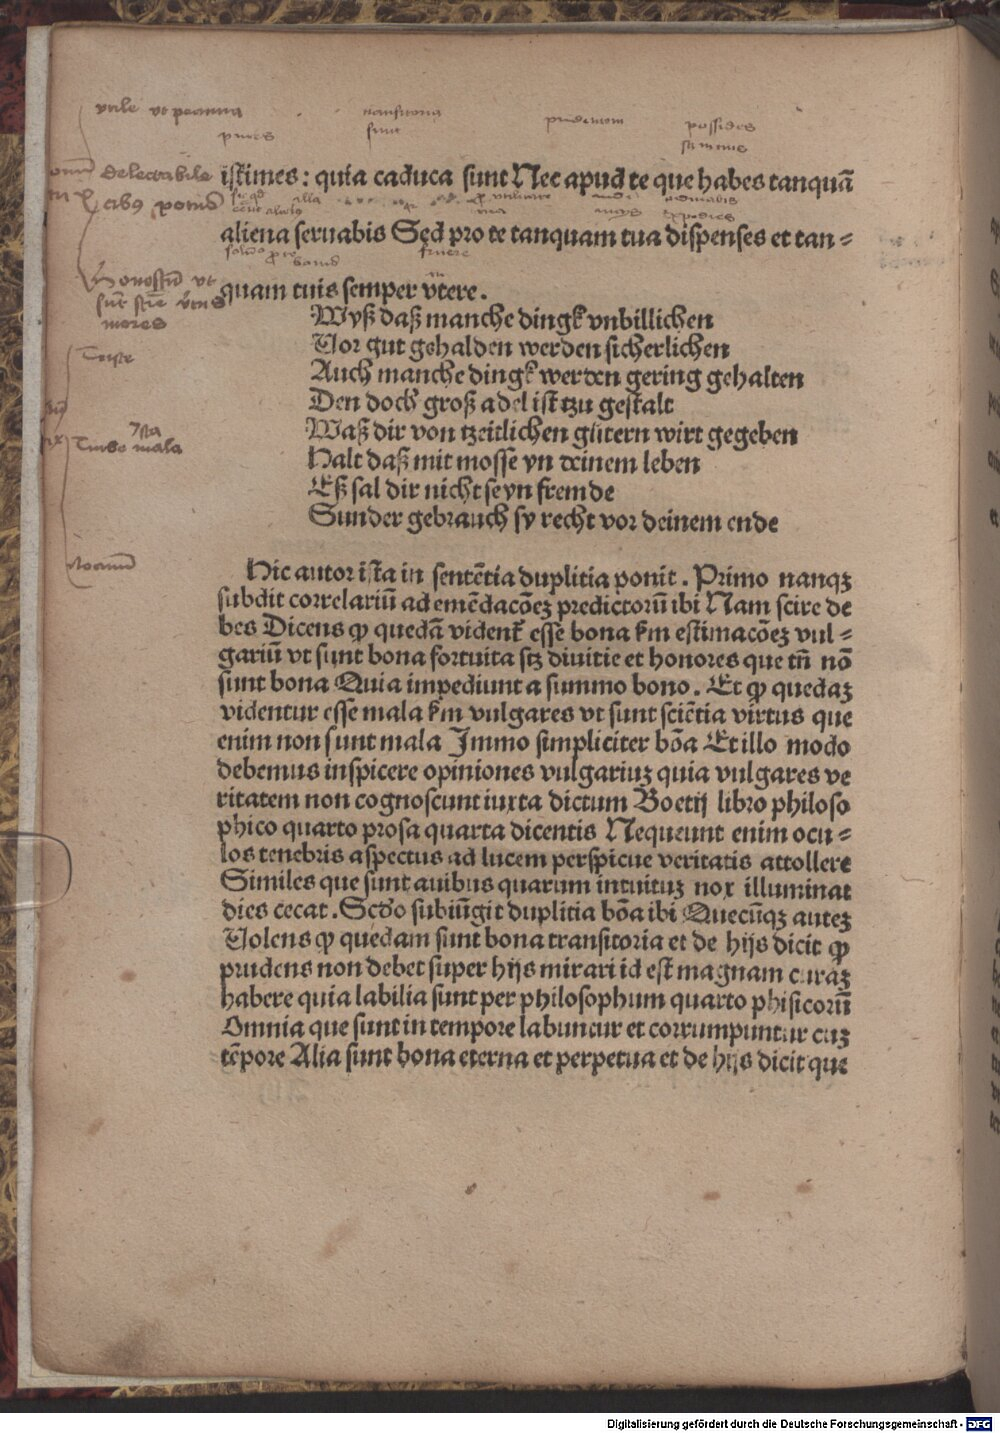 vtile vt pecunia
transitoria
prudentem
possides
putes
sunt
summus
delectabile
istimes: quia caduca sunt Nec apud te que habes tanquā
cibus potus
aliena seruabis Sed pro te tanquam tua dispenses et tan⸗
fruere
honestū vt
quam tuis semper vtere.
mores
Wyß daß manche dingk vnbillichen
Vor gut gehalden werden sicherlichen
Triste
Auch manche dingk werden gering gehalten
Den doch groß adel ist tzu gestalt
Waß dir von tzeitlichen gütern wirt gegeben
Turbe mala
Halt daß mit mosse yn deinem leben
Eß sal dir nicht seyn fremde
Sunder gebrauch sy recht vor deinem ende
Hic autor ista in sentētia duplitia ponit. Primo nanqꝫ
subdit correlariū ad emēdacōeꝫ predictorū ibi Nam scire de
bes Dicens ꝙ quedā vident᷑ esse bona ẜm estimacōeꝫ vul⸗
gariū vt sunt bona fortuita stꝫ diuitie et honores que tn̄ nō
sunt bona Quia impediunt a summo bono. Et ꝙ quedaꝫ
videntur esse mala ẜm vulgares vt sunt sciētia virtus que
enim non sunt mala Immo simpliciter bōa Et illo modo
debemus inspicere opiniones vulgariuꝫ quia vulgares ve
ritatem non cognoscunt iuxta dictum Boetij libro philoso
phico quarto prosa quarta dicentis Nequeunt enim ocu⸗
los tenebris aspectus ad lucem perspicue veritatis attollere
Similes que sunt auibus quarum intuituꝫ nox illuminat
dies cecat. Scd̄o subiūgit duplitia bōa ibi Quecūqꝫ auteꝫ
Volens ꝙ quedam sunt bona transitoria et de hijs dicit ꝙ
prudens non debet super hijs mirari id est magnam curaꝫ
habere quia labilia sunt per philosophum quarto phisicorū
Omnia que sunt in tempore labuntur et corrumpuntur cuꝫ
tēpore Alia sunt bona eterna et perpetua et de hijs dicit que
Digitalisierung gefördert durch die Deutsche Forschungsgemeinschaft - DFG